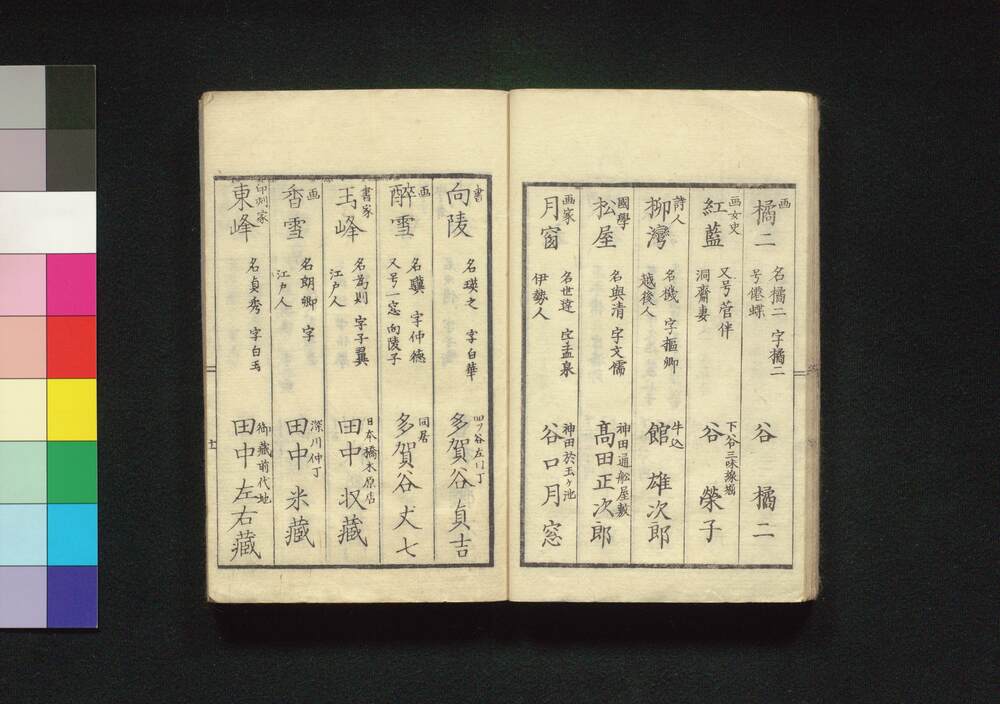 画
橘二
名橘二 字橘二
号僊蝶
谷 橘二
画女史
紅藍
又号菅伴
洞齋妻
下谷三味線堀
谷 榮子
詩人
柳灣
名機 字樞卿
越後人
牛込
館 雄次郎
國學
松屋
名與清 字文儒
神田通舩屋敷
髙田正次郎
画家
月窗
名世達 字孟泉
伊勢人
神田於玉ヶ池
谷口月窓
書
向陵
名瑛之 字白華
四ツ谷左門丁
多賀谷貞吉
画
醉雪
名驥 字仲德
又号一窓 向陵子
同居
多賀谷丈七
書家
玉峰
名為則 字子翼
江戸人
日本橋木原店
田中収藏
画
香雪
名朗卿 字
江戸人
深川仲丁
田中米藏
印刻家
東峰
名貞秀 字白玉
御藏前代地
田中左右藏
十七